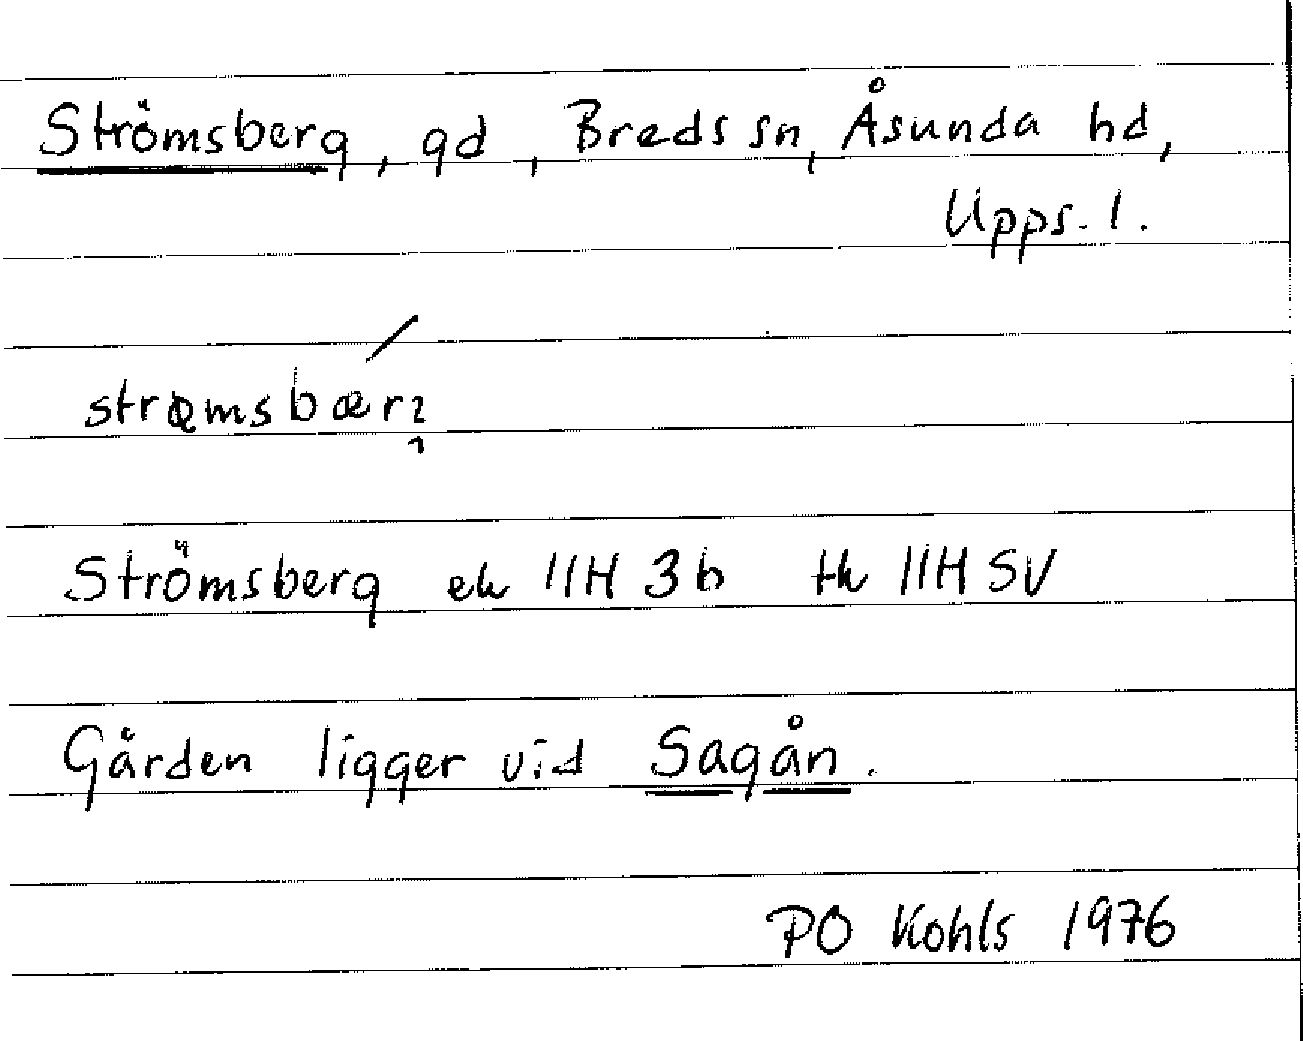 Strömsberg, gd, Breds sn, Åsunda hd,
Upps. l.
Strömsberg ek 11H 3b tk 11H SV
Gården ligger vid Sagån.
PO Kohls 1976